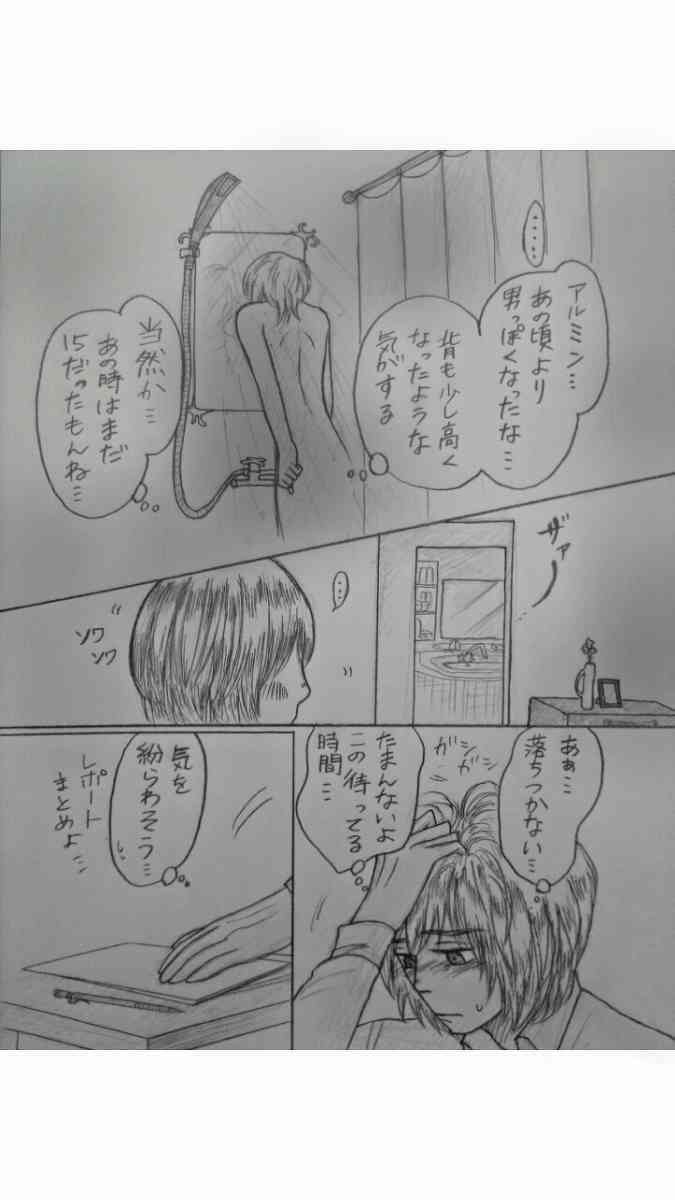 ……
アルミン…
あの頃より
男っぽくなったな…
背も少し高く
なったような
気がする
当然か…
あの時はまだ
15だったもんね…
ザァー
…
ソワ
ソワ
あぁ…
落ちつかない…
ガシ
ガシ
たまんないよ
この待ってる
時間…
気を
紛らわそう…
レポート
まとめよ…